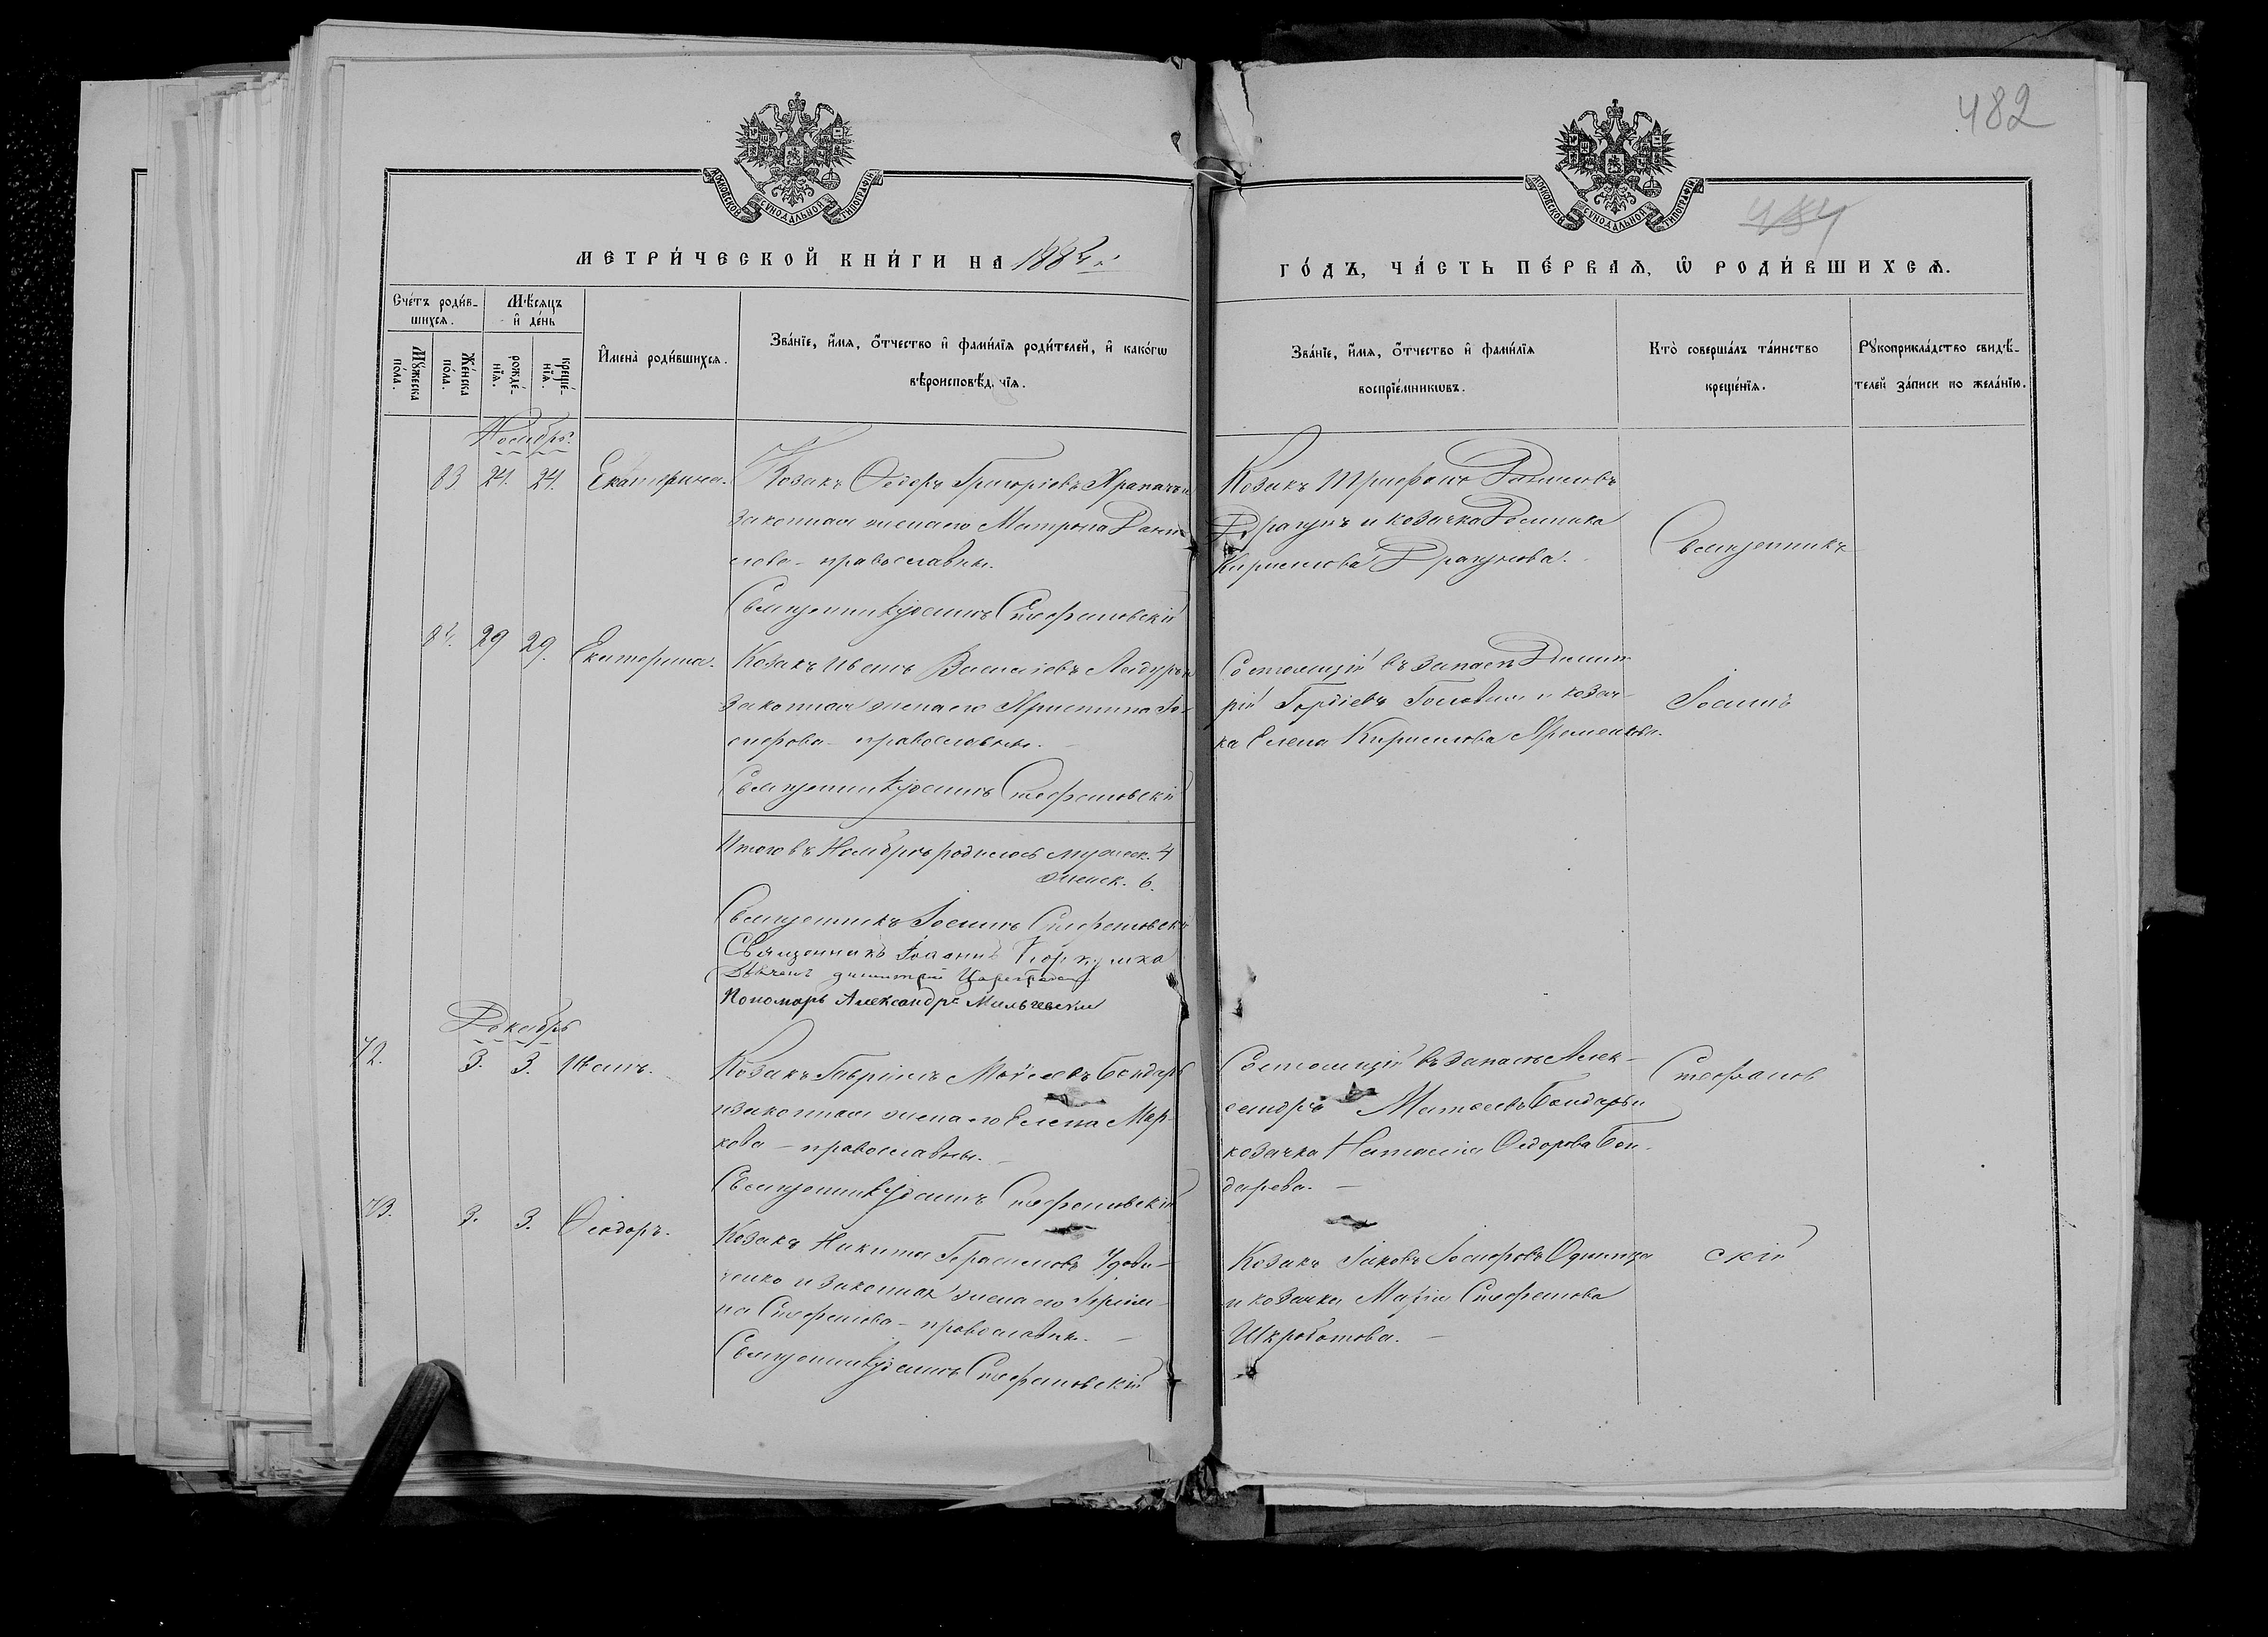 482
МОСКОВСКОЙ СѴНОДАЛЬНОЙ ТИПОГРАФІИ
МОСКОВСКОЙ СѴНОДАЛЬНОЙ ТИПОГРАФІИ
484
МЕТРИ́ЧЕСКОЙ КНИ́ГИ НА 1884й
ГО́ДЪ, ЧА́СТЬ ПЕ́РВАѦ, Ѡ҆ РОДИ́ВШИХСѦ.
Сче́тъ роди́в-
шихсѧ.
Му́жеска
по́ла.
Же́нска
по́ла.
Мѣ́сѧцъ
и҆ де́нь
рожде́-
нїѧ.
креще́-
нїѧ.
И҆мена̀ роди́вшихсѧ.
Зва́нїе, и҆́мѧ, ѻ҆́тчество и҆ фами́лїѧ роди́телей, и҆ како́гѡ
вѣроисповѣ́д. нїѧ.
Зва́нїе, и҆́мѧ, ѻ҆́тчество и҆ фами́лїѧ
воспрїе́мникѡвъ.
Кто̀ соверша́лъ та́инство
креще́нїѧ.
Рꙋкоприкла́дство свидѣ́-
телей за́писи по жела́нїю.
Ноябрь
83. 24. 24. Екатерина.
Козакъ Ѳедоръ Григоріевъ
законная жена его Матрона Дани-
лова - православны.
Священникъ Іоаннъ Стефановскій
Козакъ Трифонъ Даниловъ
Драгунъ и козачка Домника
Кирилова Драгунова.
Священникъ
84. 29 29. Екатерина.
Козакъ Иванъ Василіевъ
законная жена его Христина Іо-
сифова - православны.
Священникъ Іоаннъ Стефановскій
Состоящій въ запасѣ Димит-
рій Гордіевъ Головня и козач-
ка Елена Кирилова
Іоаннъ
Итого въ Ноябрѣ родилось мужеск. 4
женск. 6.
Священникъ Іоаннъ Стефановскій
Священникъ Іоаннъ
Димитрій
Пономарь Александръ
Декабрь
72. 3. 3. Иванъ.
Козакъ Гавріилъ Моѵсеевъ Бондарь
и законная жена его Елена Мар-
кова - православны.
Священникъ Іоаннъ Стефановскій
Состоящій въ запасѣ Алек-
сандръ Матвеевъ Бондарь и
козачка Наталія Ѳедорова Бон-
дарева.
Стефанов
73. 3. 3. Ѳеодоръ.
Козакъ Никита Герасимовъ Удови-
ченко и законная жена его Ирин-
на Стефанова - православны.
Священникъ Іоаннъ Стефановскій
Козакъ Іаковъ Іосифовъ Одиница
и козачка Марія Стефанова
Шкроботова.
скій